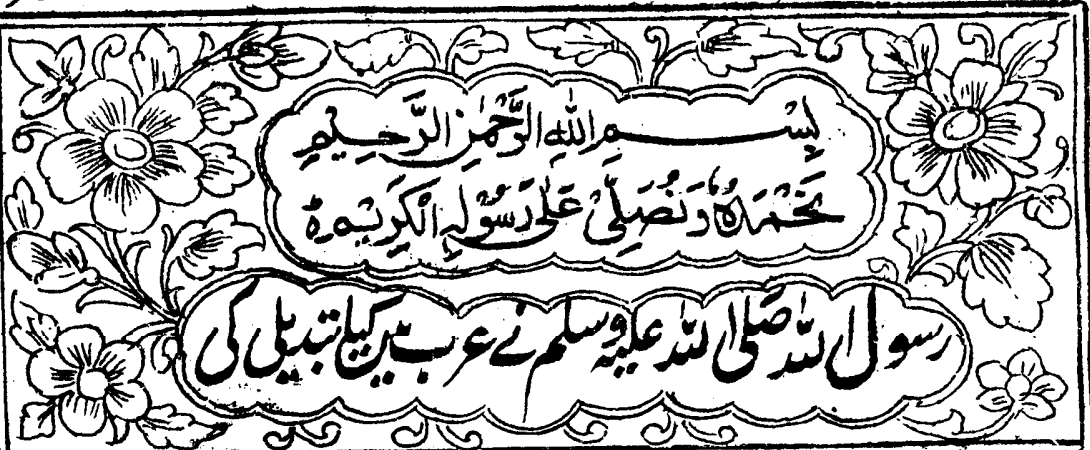 بِسْمِ اللّٰهِ الرَّحْمٰنِ الرَّحِيْمِ
نَحْمَدُهٗ وَنُصَلِّیْ عَلٰی رَسُوْلِهِ الْكَرِيْمِ ة
رسول اللہ صلی اللہ علیہ وسلم نے عرب میں کیا تبدیلی کی